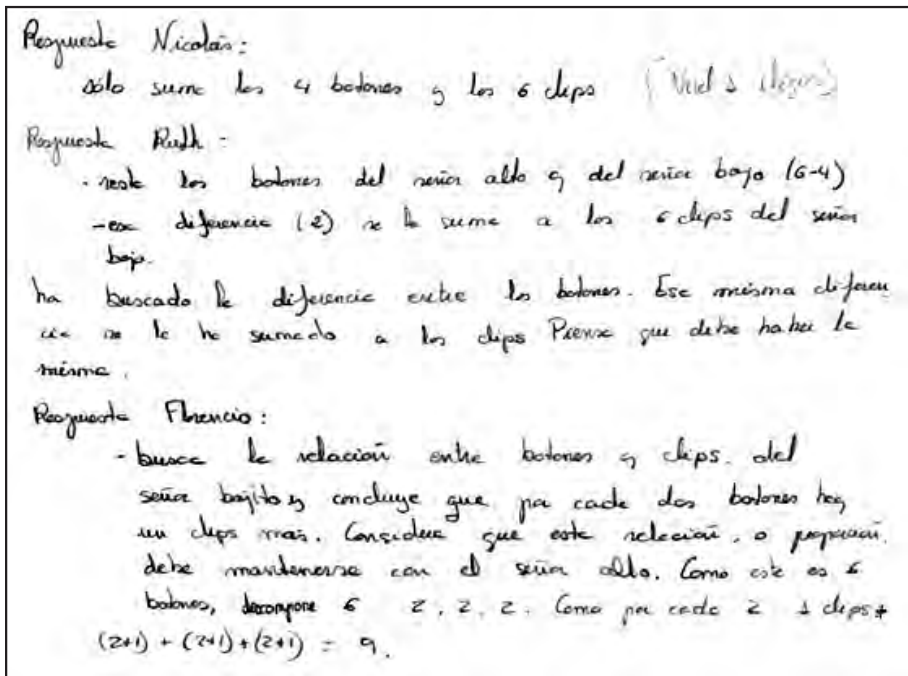 Respuesta Nicolás:
sólo suma los 4 botones y los 6 clips (Nivel 1
Respuesta Ruth -
- resta los botones del señor alto y del señor bajo (6-4)
- esa diferencia (2) se la suma a los 6 clips del señor
bajo.
ha buscado la diferencia entre los botones. Esa misma diferen
cia se la ha sumado a los clips Piensa que debe haber la
misma.
Respuesta Florencio:
- busca la relación entre botones y clips. del
señor bajito y concluye que por cada dos botones hay
un clips más. Considera que esta relación, o proporción,
debe mantenerse con el señor alto. Como este es 6
botones, descompone 6 2, 2, 2. Como por cada 2 1 clips +
(2+1) + (2+1) + (2+1) = 9.